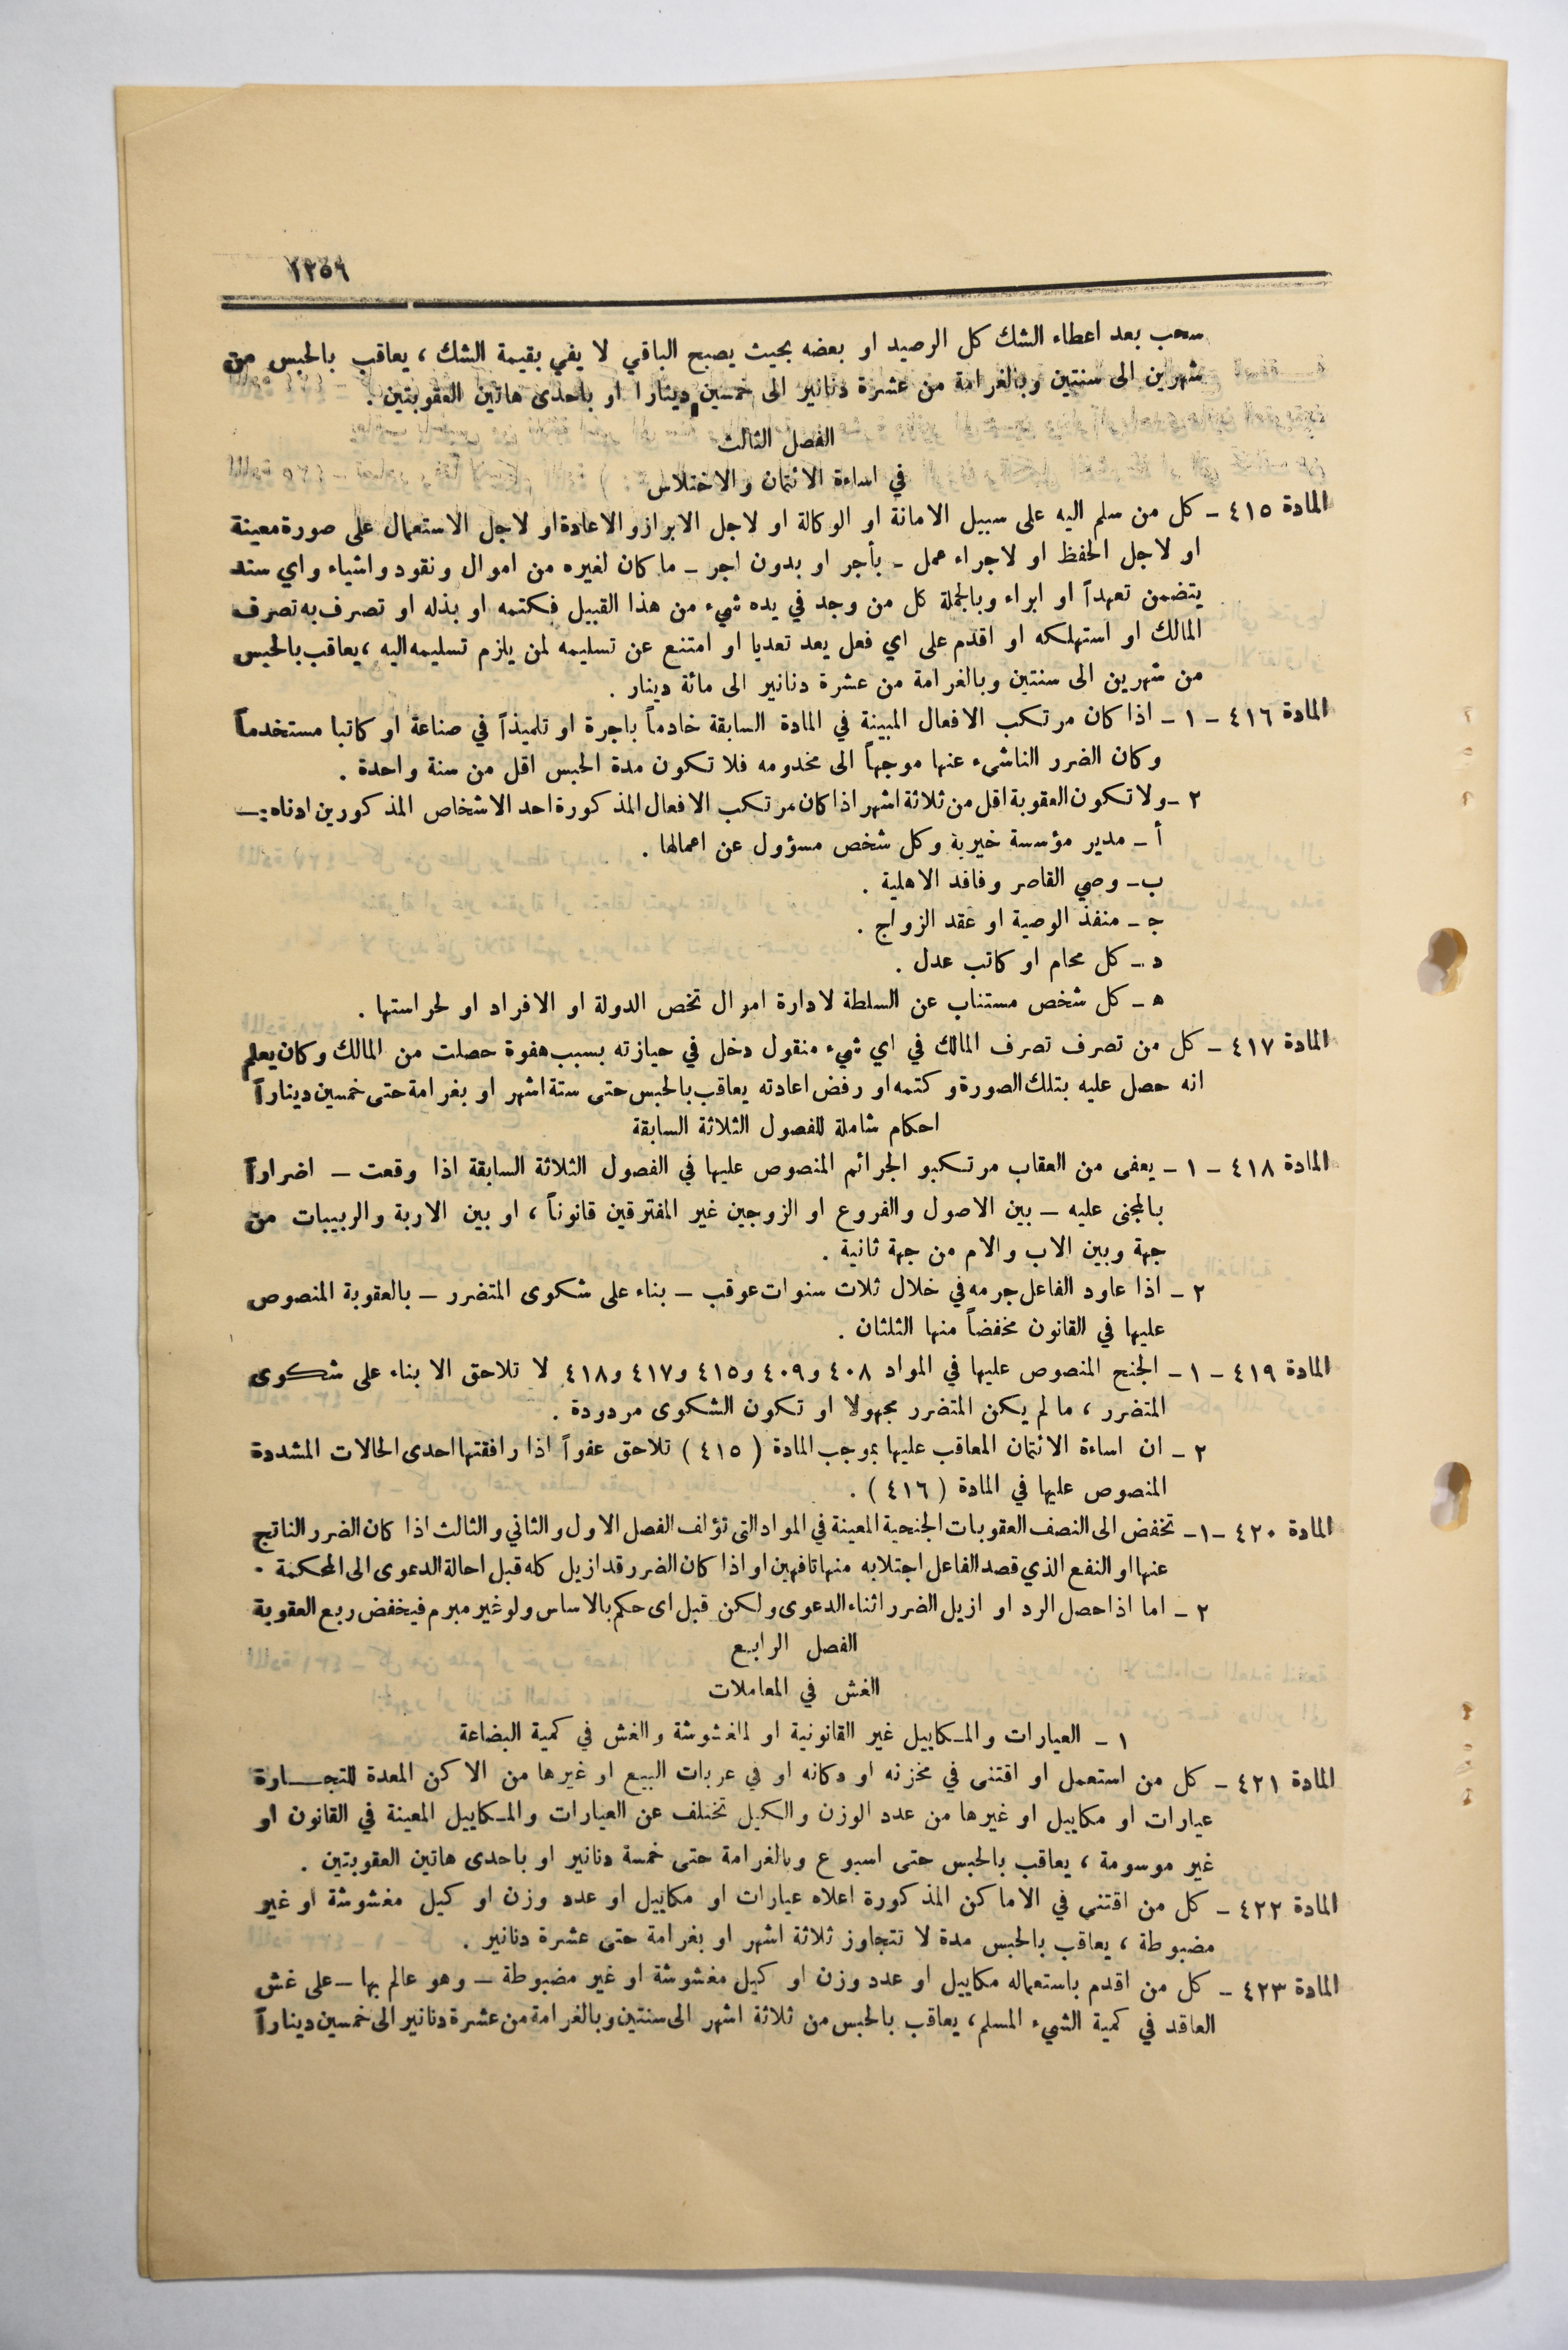 ١٢٥٩
سحب بعد اعطاء الشك كل الرصيد او بعضه بحيث يصبح الباقي لا يفي بقيمة الشك ، يعاقب بالحبس من
شهرين الى سنتين وبالغرامة من عشرة دنانير الى خمسين دينارا او باحدى هاتين العقوبتين .
الفصل الثالث
في اساءة الائتمان والاختلاس
المادة ٤١٥ – كل من سلم اليه على سبيل الامانة او الوكالة او لاجل الابراز والاعادة او لاجل الاستعمال على صورة معينة
او لاجل الحفظ او لاجراء عمل – بأجر او بدون اجر – ما كان لغيره من اموال ونقود واشياء واي سند
يتضمن تعهداً او ابراء وبالجملة كل من وجد في يده شيء من هذا القبيل فكتمه او بذله او تصرف به تصرف
المالك او استهلكه او اقدم على اي فعل يعد تعديا او امتنع عن تسليمه لمن يلزم تسليمه اليه ، يعاقب بالحبس
من شهرين الى سنتين وبالغرامة من عشرة دنانير الى مائة دينار .
المادة ٤١٦ – ١ – اذا كان مرتكب الافعال المبينة في المادة السابقة خادماً باجرة او تلميذاً في صناعة او كاتبا مستخدماً
وكان الضرر الناشىء عنها موجهاً الى مخدومه فلا تكون مدة الحبس اقل من سنة واحدة .
٢ – ولا تكون العقوبة اقل من ثلاثة اشهر اذا كان مرتكب الافعال المذكورة احد الاشخاص المذكورين ادناه :ـ
أ – مدير مؤسسة خيرية وكل شخص مسؤول عن اعمالها .
ب – وصي القاصر وفاقد الاهلية .
جـ – منفذ الوصية او عقد الزواج .
د – كل محام او كاتب عدل .
هـ – كل شخص مستناب عن السلطة لادارة اموال تخص الدولة او الافراد او لحراستها .
المادة ٤١٧ – كل من تصرف تصرف المالك في اي شيء منقول دخل في حيازته بسبب هفوة حصلت من المالك وكان يعلم
انه حصل عليه بتلك الصورة وكتمه او رفض اعادته يعاقب بالحبس حتى ستة اشهر او بغرامة حتى خمسين ديناراً
احكام شاملة للفصول الثلاثة السابقة
المادة ٤١٨ – ١ – يعفى من العقاب مرتكبو الجرائم المنصوص عليها في الفصول الثلاثة السابقة اذا وقعت – اضراراً
بالمجنى عليه – بين الاصول والفروع او الزوجين غير المفترقين قانوناً ، او بين الاربة والربيبات من
جهة وبين الاب والام من جهة ثانية .
٢ – اذا عاود الفاعل جرمه في خلال ثلاث سنوات عوقب – بناء على شكوى المتضرر – بالعقوبة المنصوص
عليها في القانون مخفضاً منها الثلثان .
المادة ٤١٩ – ١ – الجنح المنصوص عليها في المواد ٤٠٨ و٤٠٩ و٤١٥ و٤١٧ و٤١٨ لا تلاحق الا بناء على شكوى
المتضرر ، ما لم يكن المتضرر مجهولا او تكون الشكوى مردودة .
٢ – ان اساءة الائتمان المعاقب عليها بموجب المادة ( ٤١٥ ) تلاحق عفواً اذا رافقتها احدى الحالات المشددة
المنصوص عليها في المادة ( ٤١٦ ) .
المادة ٤٢٠ – ١ – تخفض الى النصف العقوبات الجنحية المعينة في المواد التى تؤلف الفصل الاول والثاني والثالث اذا كان الضرر الناتج
عنها او النفع الذي قصد الفاعل اجتلابه منها تافهين او اذا كان الضرر قد ازيل كله قبل احالة الدعوى الى المحكمة .
٢ – اما اذا حصل الرد او ازيل الضرر اثناء الدعوى ولكن قبل اى حكم بالاساس ولو غير مبرم فيخفض ربع العقوبة
الفصل الرابع
الغش في المعاملات
١ – العيارات والمكاييل غير القانونية او المغشوشة والغش في كمية البضاعة
المادة ٤٢١ – كل من استعمل او اقتنى في مخزنه او دكانه او في عربات البيع او غيرها من الاكن المعدة للتجـــارة
عيارات او مكاييل او غيرها من عدد الوزن والكيل تختلف عن العيارات والمكاييل المعينة في القانون او
غير موسومة ، يعاقب بالحبس حتى اسبوع وبالغرامة حتى خمسة دنانير او باحدى هاتين العقوبتين .
المادة ٤٢٢ – كل من اقتنى في الاماكن المذكورة اعلاه عيارات او مكاييل او عدد وزن او كيل مغشوشة او غير
مضبوطة ، يعاقب بالحبس مدة لا تتجاوز ثلاثة اشهر او بغرامة حتى عشرة دنانير .
المادة ٤٢٣ – كل من اقدم باستعماله مكاييل او عدد وزن او كيل مغشوشة او غير مضبوطة – وهو عالم بها – على غش
العاقد في كمية الشيء المسلم ، يعاقب بالحبس من ثلاثة اشهر الى سنتين وبالغرامة من عشرة دنانير الى خمسين ديناراً